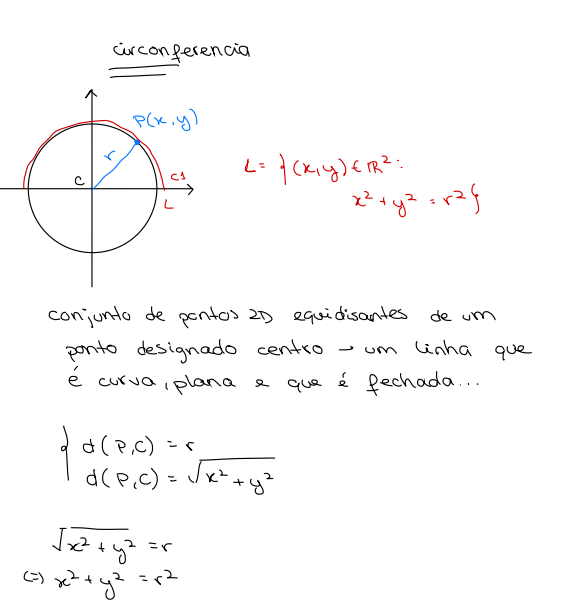 circonferencia
P(x,y)
r
C
C1
L
L = {(x,y) ∈ ℝ²:
x² + y² = r²}
conjunto de pontos 2D equidisantes de um
ponto designado centro → um linha que
é curva, plana e que é fechada...
{ d(P,C) = r
d(P,C) = √x² + y²
√x² + y² = r
(=) x² + y² = r²